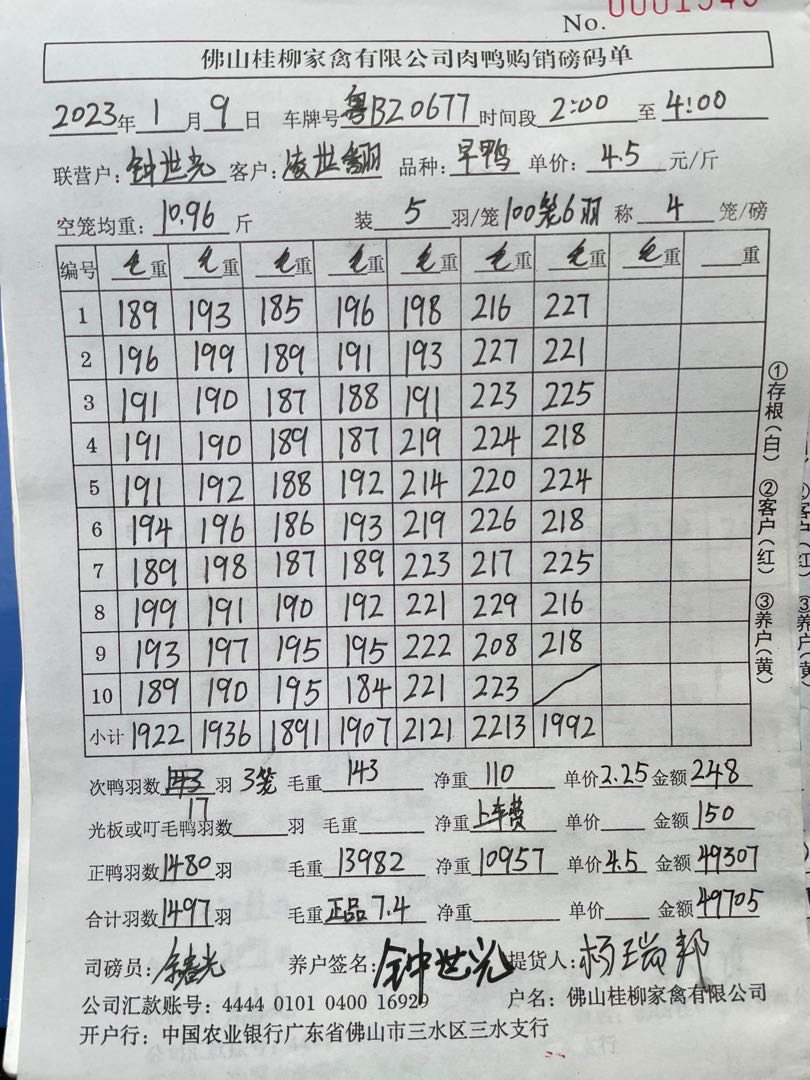 No. 0001540
佛山桂柳家禽有限公司肉鸭购销磅码单
2023年 1 月 9 日 车牌号 粤BZ0677 时间段 2:00 至 4:00
联营户: 钟世光 客户: 凌世翻 品种: 早鸭 单价: 4.5 元/斤
空笼均重: 10.96 斤 装 5 羽/笼 100笼6羽 称 4 笼/磅
编号 毛重 毛重 毛重 毛重 毛重 毛重 毛重 毛重 重
1 189 193 185 196 198 216 227
2 196 199 189 191 193 227 221
3 191 190 187 188 191 223 225
4 191 190 189 187 219 224 218
5 191 192 188 192 214 220 224
6 194 196 186 193 219 226 218
7 189 198 187 189 223 217 225
8 199 191 190 192 221 229 216
9 193 197 195 195 222 208 218
10 189 190 195 184 221 223
小计 1922 1936 1891 1907 2121 2213 1992
①存根(白) ②客户(红) ③养户(黄)
次鸭羽数 143 羽 3笼 毛重 143 净重 110 单价 2.25 金额 248
17
光板或叮毛鸭羽数 羽 毛重 净重 上车费 单价 金额 150
正鸭羽数 1480 羽 毛重 13982 净重 10957 单价 4.5 金额 49307
合计羽数 1497 羽 毛重 正品7.4 净重 单价 金额 49705
司磅员: 养户签名: 钟世光 提货人: 杨瑞邦
公司汇款账号: 4444 0101 0400 16929 户名: 佛山桂柳家禽有限公司
开户行: 中国农业银行广东省佛山市三水区三水支行